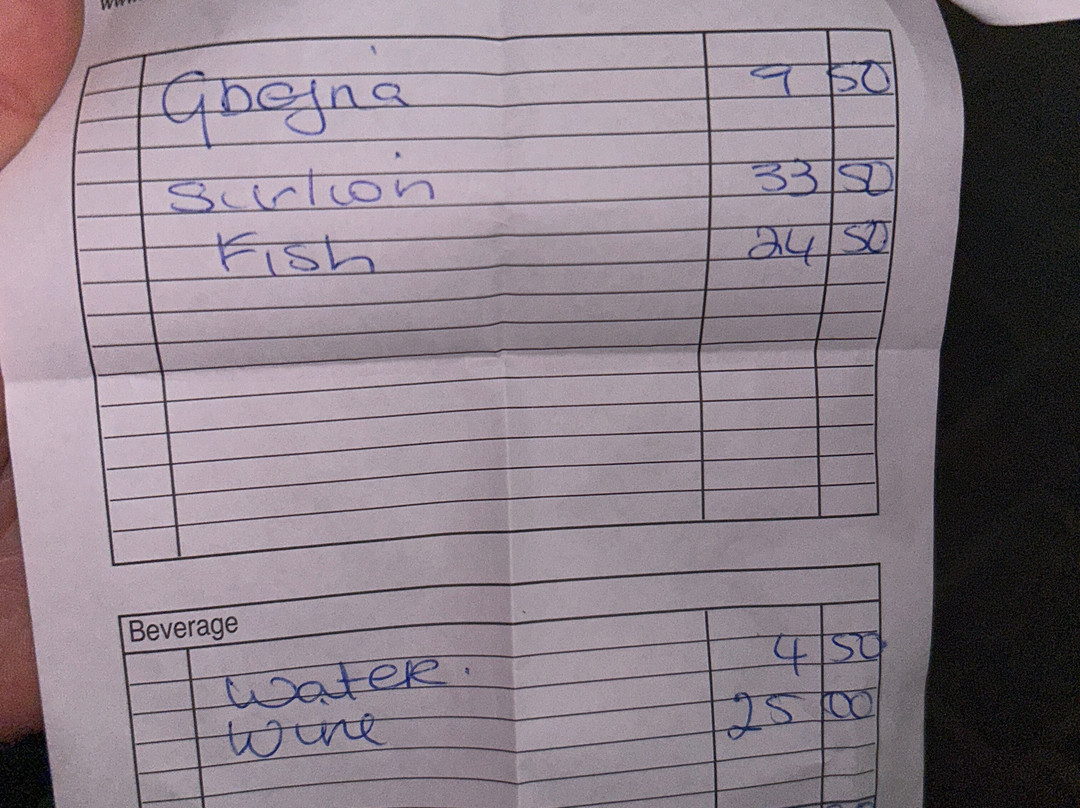 Gbejna 9 50
Surlion 33 50
Fish 24 50
Beverage
Water. 4 50
Wine 25 00